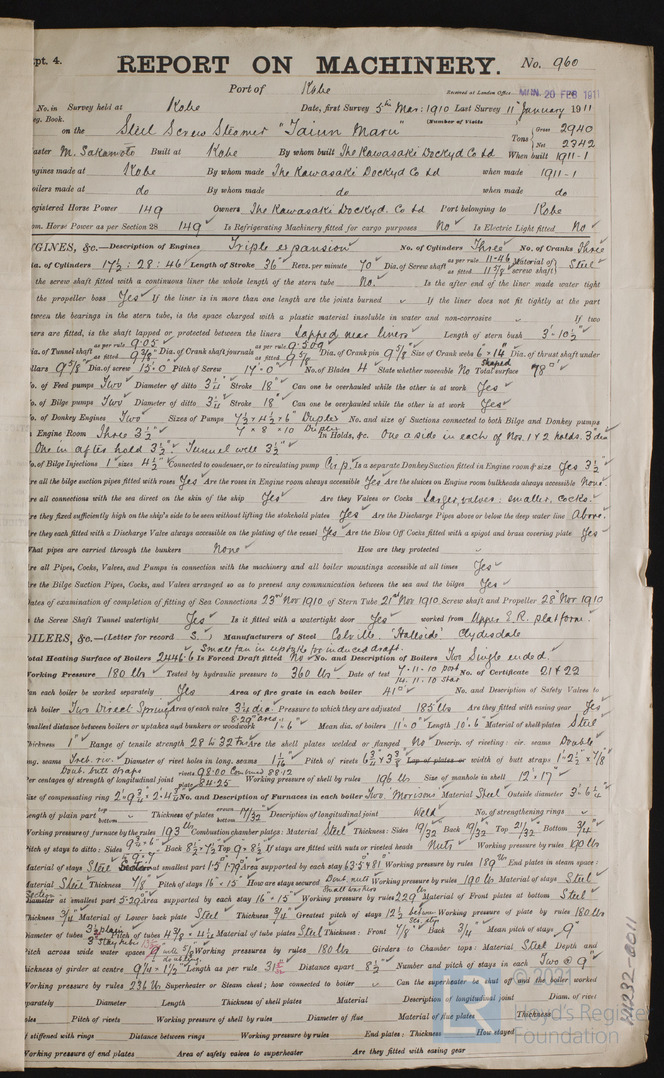 pt. 4.
REPORT ON MACHINERY. No. 960
Port of Kobe Received at London Office MON. 20 FEB 1911
No. in Survey held at Kobe Date, first Survey 5th Mar: 1910 Last Survey 11th January 1911
eg. Book. (Number of Visits
on the Steel Screw Steamer "Taiun Maru" Tons Gross 2940 Net 2342
aster M. Sakamoto Built at Kobe By whom built The Kawasaki Dockyd Co Ltd When built 1911-1
ngines made at Kobe By whom made The Kawasaki Dockyd Co Ltd when made 1911-1
oilers made at do By whom made do when made do
egistered Horse Power 149 Owners The Kawasaki Dockyd. Co Ltd Port belonging to Kobe
om. Horse Power as per Section 28 149 Is Refrigerating Machinery fitted for cargo purposes No Is Electric Light fitted No
NGINES, &c.—Description of Engines Triple expansion No. of Cylinders Three No. of Cranks Three
ia. of Cylinders 17½ : 28 : 46 Length of Stroke 36" Revs. per minute 70 Dia. of Screw shaft as per rule 11.46 as fitted 11 7/8 Material of screw shaft Steel
the screw shaft fitted with a continuous liner the whole length of the stern tube No. Is the after end of the liner made water tight
the propeller boss Yes If the liner is in more than one length are the joints burned If the liner does not fit tightly at the part
tween the bearings in the stern tube, is the space charged with a plastic material insoluble in water and non-corrosive If two
ners are fitted, is the shaft lapped or protected between the liners Lapped near liners Length of stern bush 3'-10½"
ia. of Tunnel shaft as per rule 9.05 as fitted 9 7/8 Dia. of Crank shaft journals as per rule 9.509 as fitted 9 5/8 Dia. of Crank pin 9 7/8 Size of Crank webs 6" x 14" shaped Dia. of thrust shaft under
llars 9 5/8 Dia. of screw 15'-0" Pitch of Screw 17'-0" No. of Blades 4 State whether moveable No Total surface 78
o. of Feed pumps Two Diameter of ditto 3¼ Stroke 18" Can one be overhauled while the other is at work Yes
o. of Bilge pumps Two Diameter of ditto 3¼ Stroke 18" Can one be overhauled while the other is at work Yes
o. of Donkey Engines Two Sizes of Pumps 7½ x 4½ x 6" Duplex 7 x 8 x 10 Duplex No. and size of Suctions connected to both Bilge and Donkey pumps
Engine Room Three 3½" In Holds, &c. One a side in each of Nos. 1 & 2 holds. 3" dia
One in after hold 3½". Tunnel well 3½"
o. of Bilge Injections 1 sizes 4½" Connected to condenser, or to circulating pump Cir. p. Is a separate Donkey Suction fitted in Engine room & size Yes 3½"
re all the bilge suction pipes fitted with roses Yes Are the roses in Engine room always accessible Yes Are the sluices on Engine room bulkheads always accessible None
re all connections with the sea direct on the skin of the ship Yes Are they Valves or Cocks Larger, valves: smaller, cocks.
re they fixed sufficiently high on the ship's side to be seen without lifting the stokehold plates Yes Are the Discharge Pipes above or below the deep water line Above.
re they each fitted with a Discharge Valve always accessible on the plating of the vessel Yes Are the Blow Off Cocks fitted with a spigot and brass covering plate Yes
What pipes are carried through the bunkers None How are they protected
re all Pipes, Cocks, Valves, and Pumps in connection with the machinery and all boiler mountings accessible at all times Yes
re the Bilge Suction Pipes, Cocks, and Valves arranged so as to prevent any communication between the sea and the bilges Yes
ates of examination of completion of fitting of Sea Connections 23rd Nov 1910 of Stern Tube 21st Nov 1910 Screw shaft and Propeller 28th Nov 1910
the Screw Shaft Tunnel watertight Yes Is it fitted with a watertight door Yes worked from Upper E.R. platform.
OILERS, &c.—(Letter for record S.) Manufacturers of Steel Colville. "Hallside" Clydesdale
Small fan in uptake for induced draft.
otal Heating Surface of Boilers 2446.6 Is Forced Draft fitted No No. and Description of Boilers Two Single ended.
orking Pressure 180 lbs Tested by hydraulic pressure to 360 lbs Date of test 7.11.10 port 14.11.10 star No. of Certificate 21 & 22
an each boiler be worked separately Yes Area of fire grate in each boiler 41 No. and Description of Safety Valves to
ch boiler Two Direct Spring Area of each valve 3¼ dia 8.29 area Pressure to which they are adjusted 185 lbs Are they fitted with easing gear Yes
mallest distance between boilers or uptakes and bunkers or woodwork 1'-6" Mean dia. of boilers 11'-0" Length 10'-6" Material of shell plates Steel
hickness 1" Range of tensile strength 28 to 32 tons Are the shell plates welded or flanged No Descrip. of riveting: cir. seams Double
ng. seams Treb. riv. Doub. butt straps Diameter of rivet holes in long. seams 1 1/16 Pitch of rivets 6¾ x 3 3/8 Lap of plates or width of butt straps 1'-2½" x 7/8"
er centages of strength of longitudinal joint rivets 98.00 Combined 88.12 plate 84.25 Working pressure of shell by rules 196 lbs Size of manhole in shell 12" x 17"
ize of compensating ring No. and Description of Furnaces in each boiler Two Morisons Material Steel Outside diameter 3'-6¼"
ength of plain part top bottom Thickness of plates crown bottom 17/32" Description of longitudinal joint Weld No. of strengthening rings
orking pressure of furnace by the rules 193 lbs Combustion chamber plates: Material Steel Thickness: Sides 19/32 Back 19/32 Top 21/32 Bottom ¾"
itch of stays to ditto: Sides Back 8½ x 7½ Top 9 x 8½ If stays are fitted with nuts or riveted heads Nuts Working pressure by rules 190 lbs
aterial of stays Steel at smallest part Area supported by each stay 63.5 & 81 Working pressure by rules 189 lbs End plates in steam space:
aterial Steel Thickness 7/8 Pitch of stays 16" x 15" How are stays secured Doub. nuts Small washers Working pressure by rules 190 lbs Material of stays Steel
iameter at smallest part 5.29 Area supported by each stay 16" x 15" Working pressure by rules 229 lbs Material of Front plates at bottom Steel
hickness ¾" Material of Lower back plate Steel Thickness ¾" Greatest pitch of stays 12½ between Working pressure of plate by rules 180 lbs
iameter of tubes 3½ plain 3" stay tubes Pitch of tubes 4 7/8 x 4½ Material of tube plates Steel Thickness: Front 7/8" Back ¾" Mean pitch of stays 9"
itch across wide water spaces Working pressures by rules 180 lbs Girders to Chamber tops: Material Steel Depth and
hickness of girder at centre 9¼ - 1½" Length as per rule 31 Distance apart 8½ Number and pitch of stays in each Two @ 9"
orking pressure by rules 236 lbs Superheater or Steam chest; how connected to boiler Can the superheater be shut off and the boiler worked
eparately Diameter Length Thickness of shell plates Material Description of longitudinal joint Diam. of rivet
oles Pitch of rivets Working pressure of shell by rules Diameter of flue Material of flue plates Thickness
f stiffened with rings Distance between rings Working pressure by rules End plates: Thickness How stayed
Working pressure of end plates Area of safety valves to superheater Are they fitted with easing gear
© 2021
Lloyd's Register
Foundation